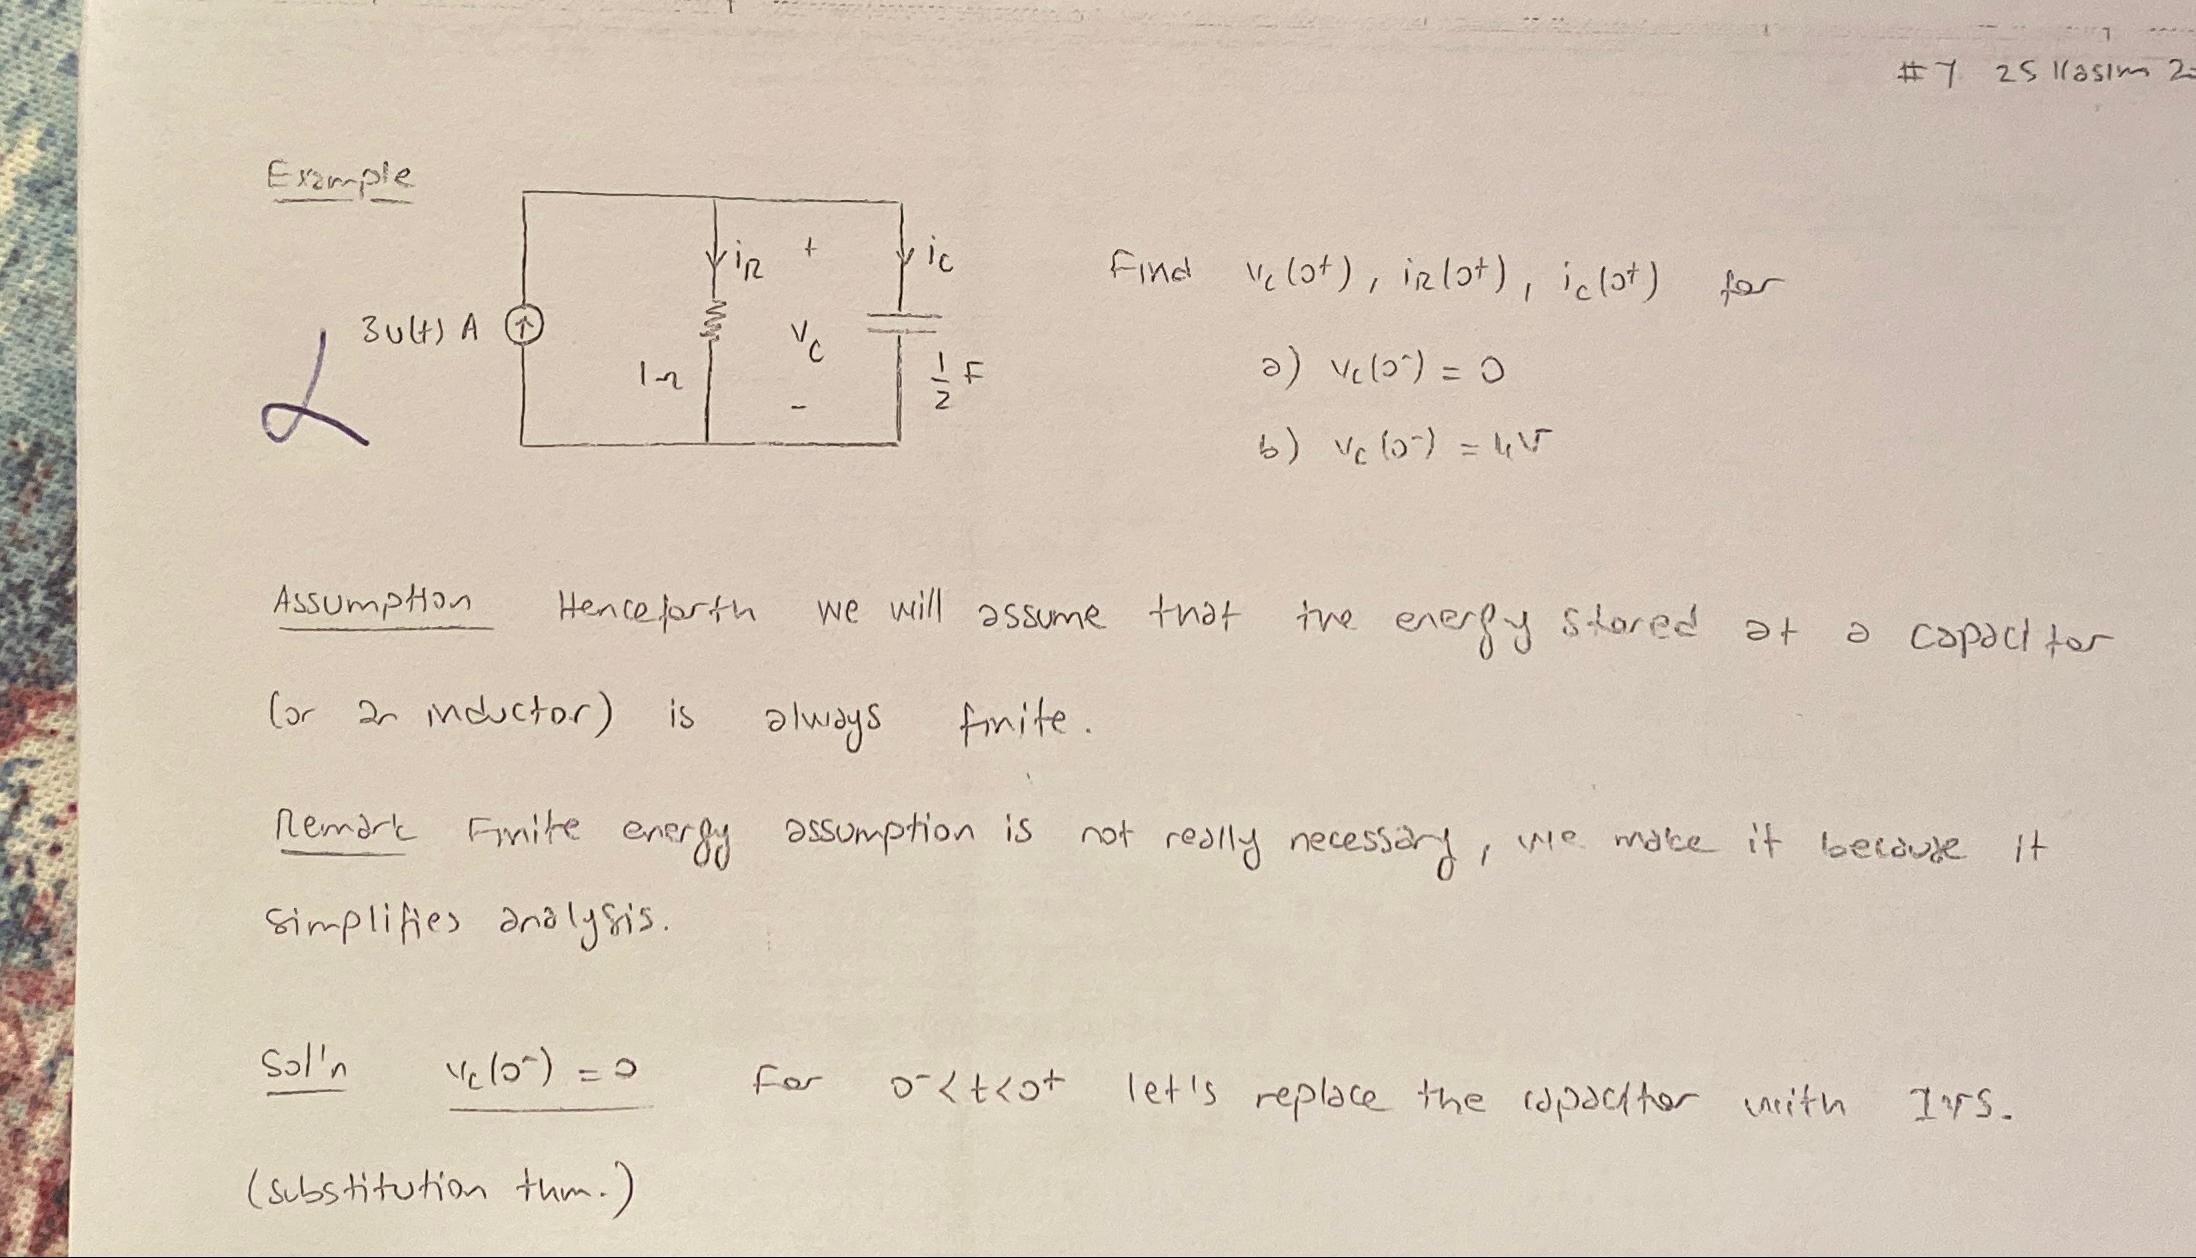 #7 25 Kasım
Example
3u(t) A
iR
+
vC
-
iC
1Ω
1/2 F
Find vc(0+), iR(0+), ic(0+) for
a) vc(0-) = 0
b) vc(0-) = 4V
Assumption Henceforth we will assume that the energy stored at a capacitor
(or an inductor) is always finite.
Remark Finite energy assumption is not really necessary, we make it because it
simplifies analysis.
Sol'n vc(0-) = 0 For 0-<t<0+ let's replace the capacitor with IVS.
(substitution thm.)